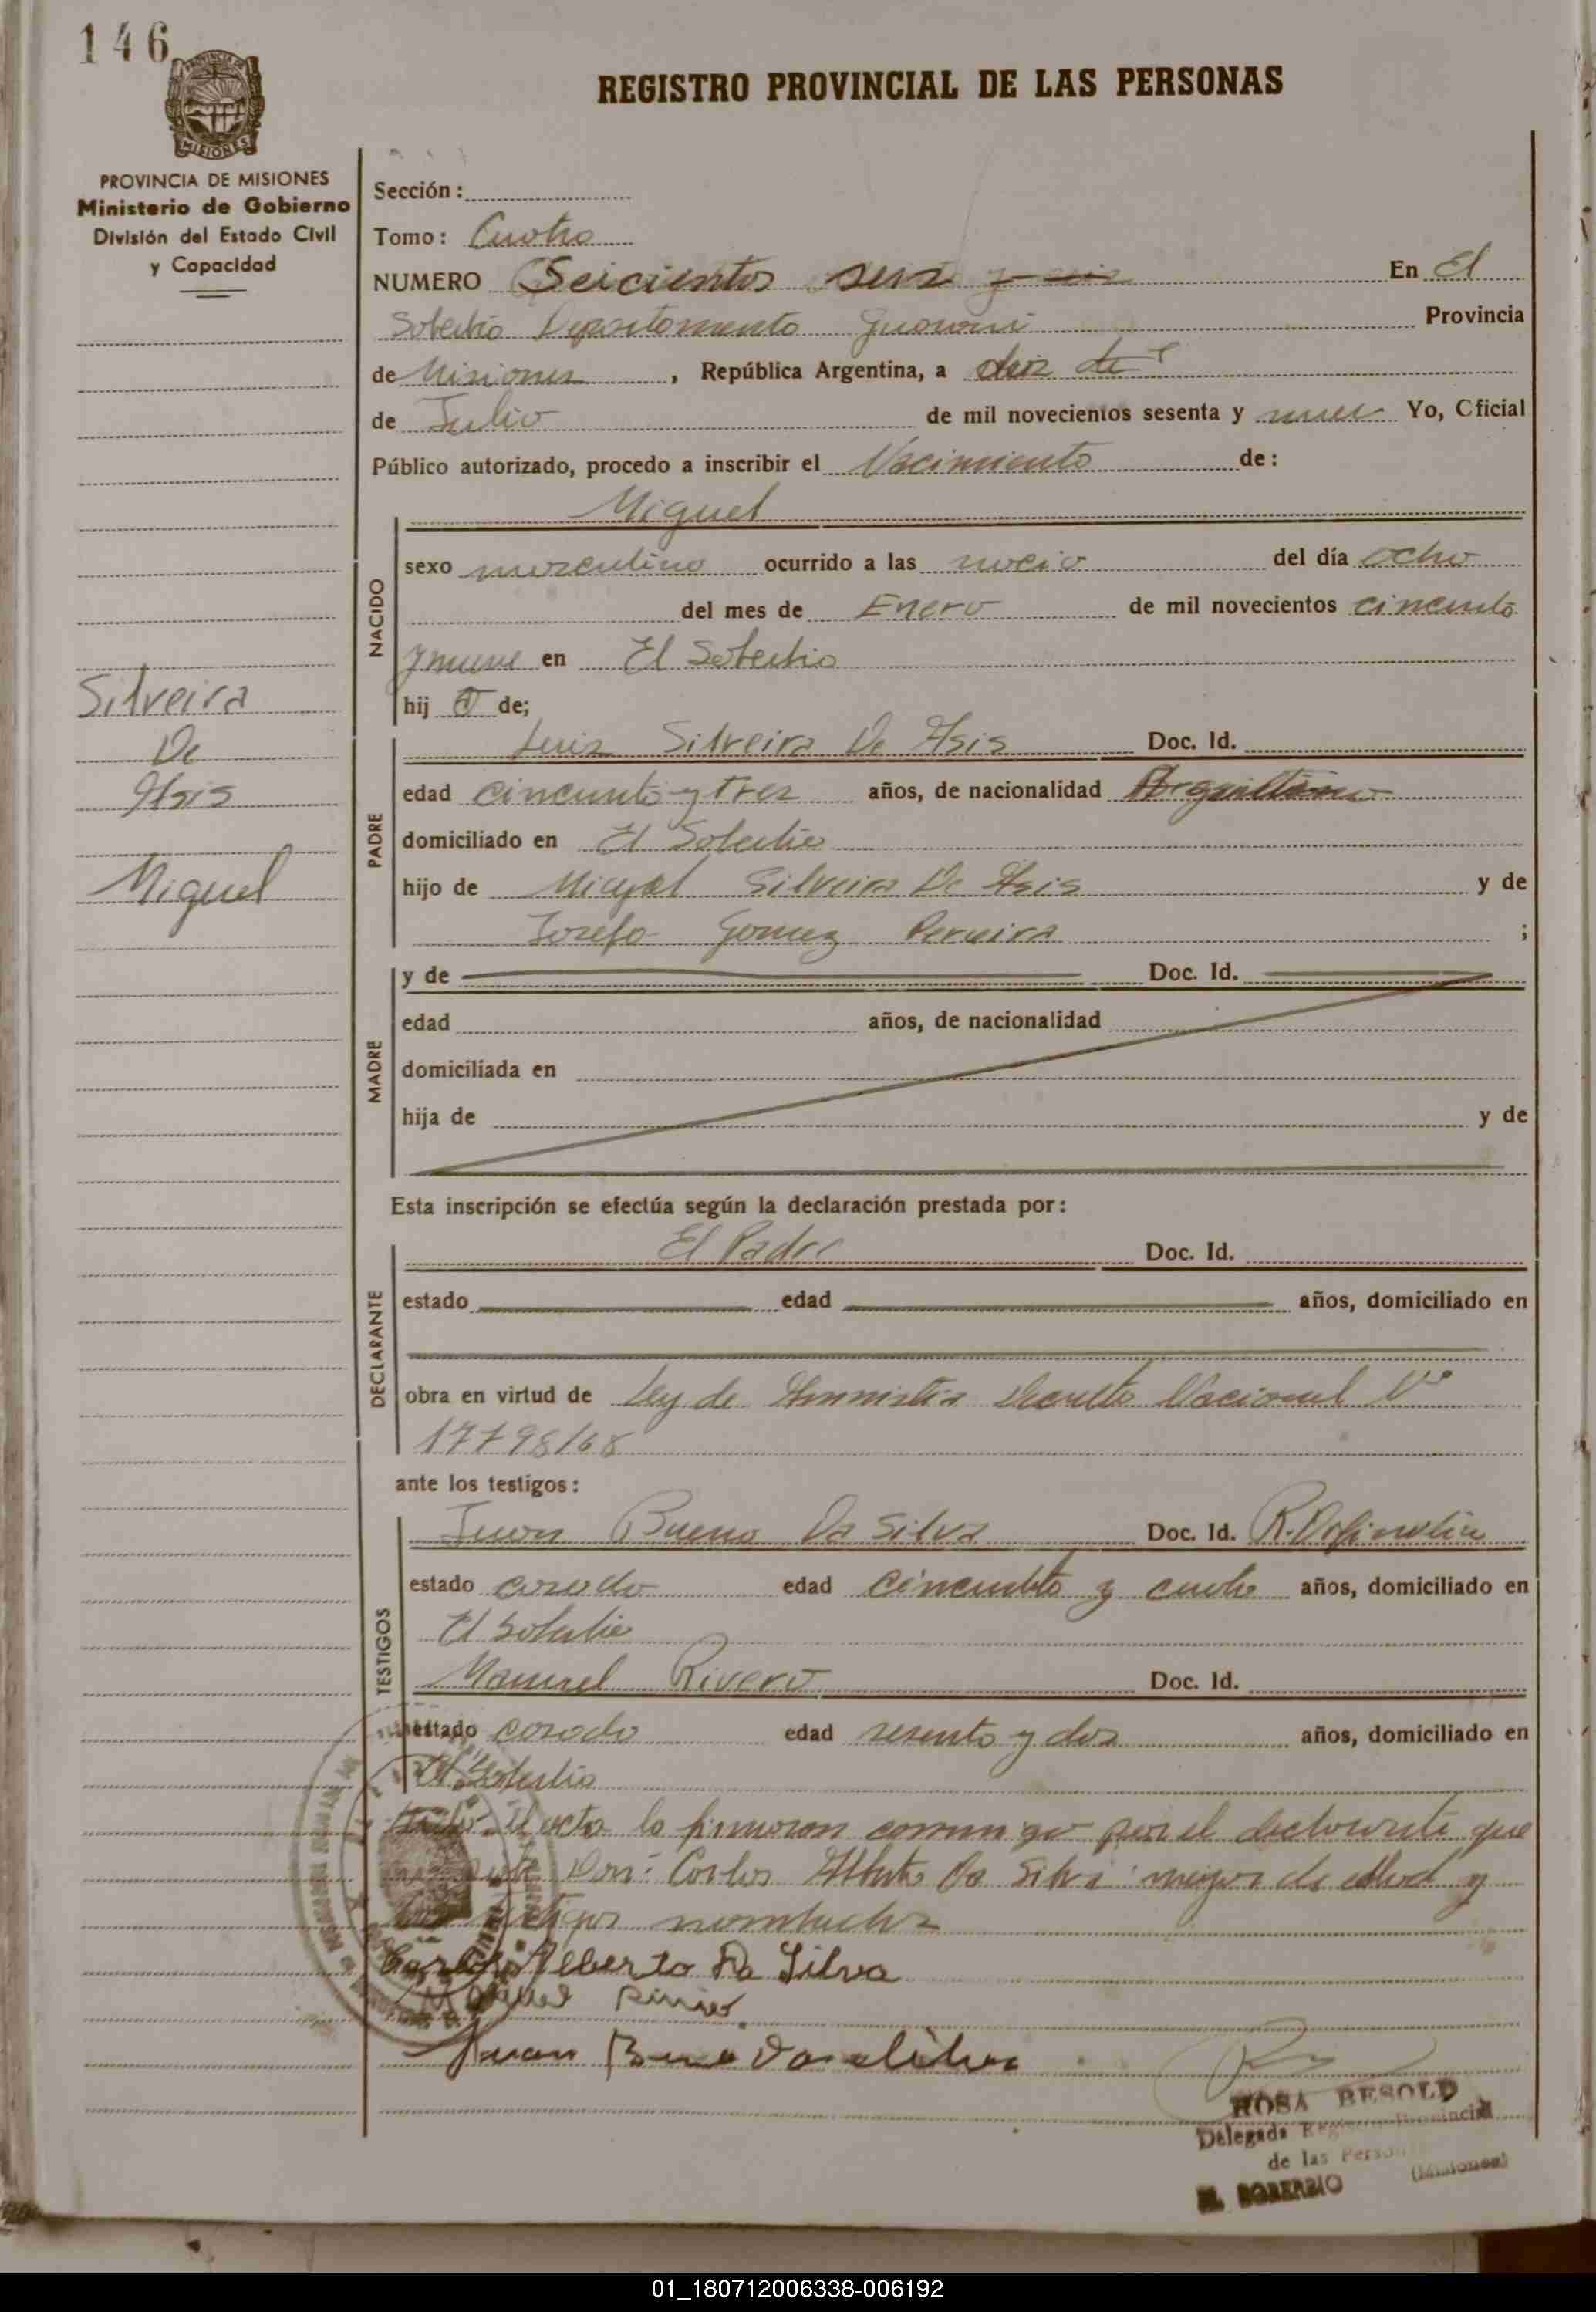 146
PROVINCIA DE
MISIONES
PROVINCIA DE MISIONES
Ministerio de Gobierno
División del Estado Civil
y Capacidad
REGISTRO PROVINCIAL DE LAS PERSONAS
Sección:
Tomo: Cuatro
NUMERO Seicientos seis y seis En El
Soberbio Departamento Guarani Provincia
de Misiones, República Argentina, a diez de
de Julio de mil novecientos sesenta y nueve Yo, Oficial
Público autorizado, procedo a inscribir el Nacimiento de:
Miguel
NACIDO
sexo masculino ocurrido a las del día ocho
del mes de Enero de mil novecientos cincuenta
y nueve en El Soberbio
hij o de;
Silveira
De
Asis
Miguel
PADRE
Luis Silveira De Asis Doc. Id.
edad cincuenta y tres años, de nacionalidad
domiciliado en El Soberbio
hijo de Miguel Silveira De Asis y de
Josefa Gomez Pereira ;
MADRE
y de Doc. Id.
edad años, de nacionalidad
domiciliada en
hija de y de
Esta inscripción se efectúa según la declaración prestada por:
DECLARANTE
El Padre Doc. Id.
estado edad años, domiciliado en
obra en virtud de Ley de Amnistia Decreto Nacional Nº
17798/68
ante los testigos:
TESTIGOS
Juan Bueno Da Silva Doc. Id.
estado casado edad cincuenta y cuatro años, domiciliado en
El Soberbio
Manuel Rivero Doc. Id.
estado casado edad sesenta y dos años, domiciliado en
El Soberbio
el acta la firmaron conmigo por el declarante que
Don: Carlos Alberto Da Silva mayor de edad y
testigos nombrados
Carlos Alberto Da Silva
Juan Bueno da silva
ROSA BESOLD
Delegada Registro Provincial
de las Personas
EL SOBERBIO (Misiones)
01_180712006338-006192